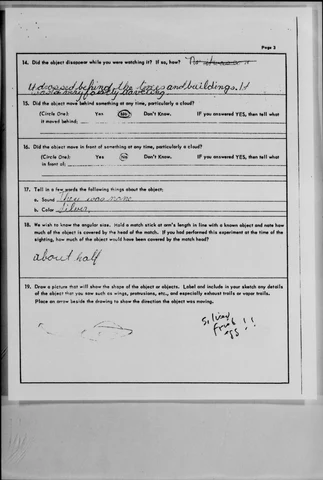 Page 3
14. Did the object disappear while you were watching it? If so, how?
It dropped behind the trees and buildings. It
15. Did the object move behind something at any time, particularly a cloud?
(Circle One): Yes No Don't Know. IF you answered YES, then tell what
it moved behind:
16. Did the object move in front of something at any time, particularly a cloud?
(Circle One): Yes No Don't Know. IF you answered YES, then tell what
in front of:
17. Tell in a few words the following things about the object:
a. Sound There was none
b. Color Silver.
18. We wish to know the angular size. Hold a match stick at arm's length in line with a known object and note how
much of the object is covered by the head of the match. If you had performed this experiment at the time of the
sighting, how much of the object would have been covered by the match head?
about half
19. Draw a picture that will show the shape of the object or objects. Label and include in your sketch any details
of the object that you saw such as wings, protrusions, etc., and especially exhaust trails or vapor trails.
Place an arrow beside the drawing to show the direction the object was moving.